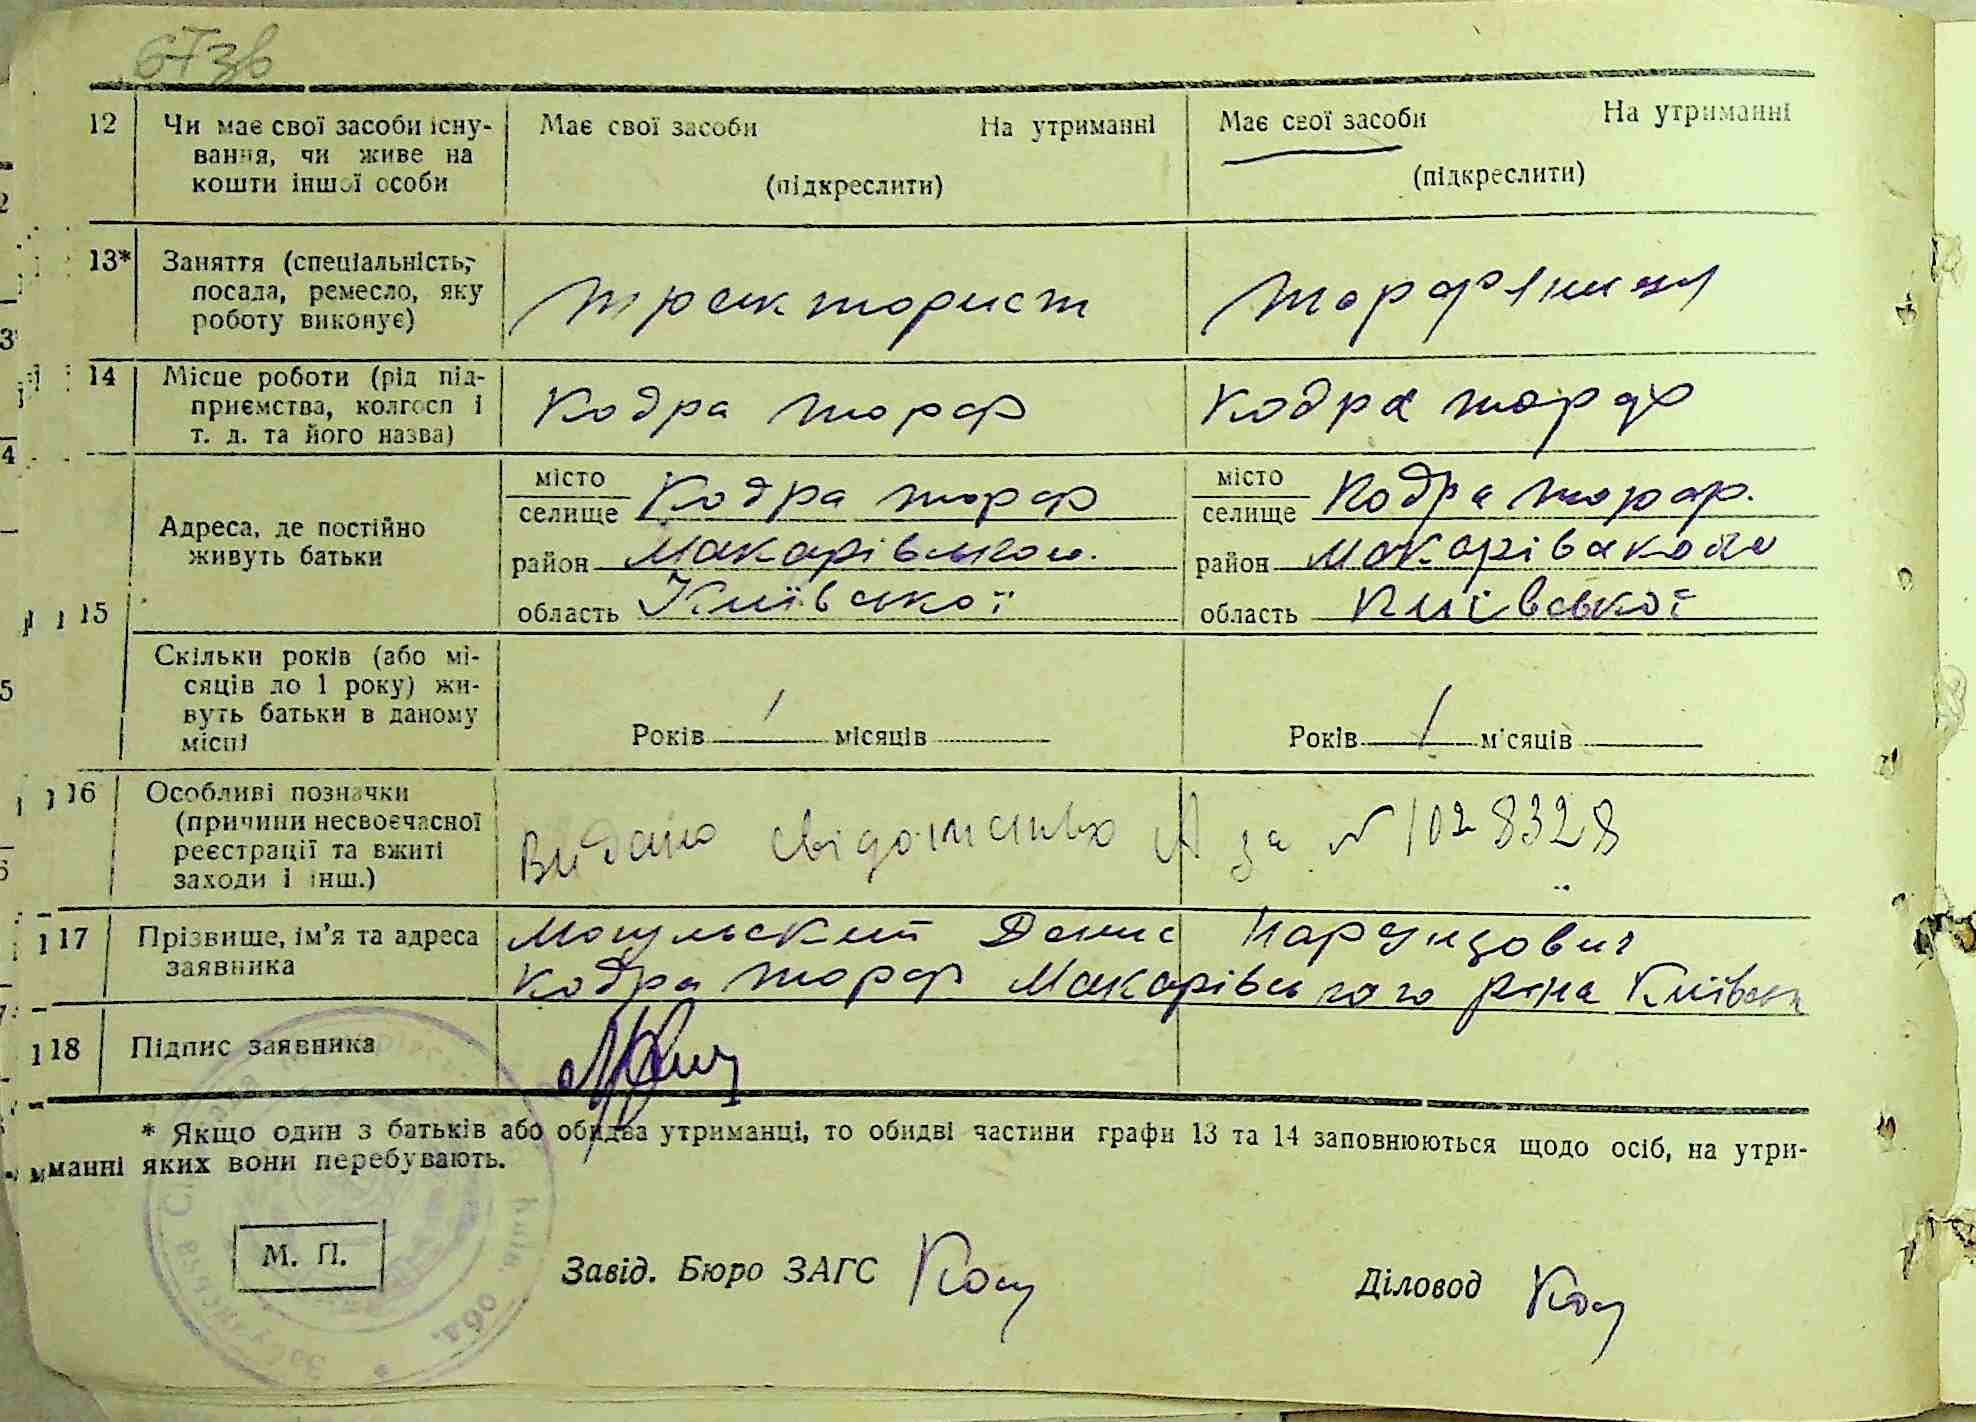 67зв
12 Чи має свої засоби існу- Має свої засоби На утриманні Має свої засоби На утриманні
вання, чи живе на
кошти іншої особи (підкреслити) (підкреслити)
13* Заняття (спеціальність,
посада, ремесло, яку Тракторист Торфяниця
роботу виконує)
14 Місце роботи (рід під-
приємства, колгосп і Кодра торф Кодра торф
т. д. та його назва)
місто Кодра торф місто Кодра торф.
Адреса, де постійно селище селище
живуть батьки район Макарівського район Макарівського
15 область Київської область Київської
Скільки років (або мі-
сяців до 1 року) жи-
вуть батьки в даному
місці Років 1 місяців Років 1 місяців
16 Особливі позначки
(причини несвоєчасної Видано свідотство А за № 1028328
реєстрації та вжиті
заходи і інш.)
17 Прізвище, ім'я та адреса Могульский Денис
заявника Кодра торф Макарівського р-на Київськ
18 Підпис заявника
* Якщо один з батьків або обидва утриманці, то обидві частини графи 13 та 14 заповнюються щодо осіб, на утри-
манні яких вони перебувають.
М. П. Завід. Бюро ЗАГС Діловод
Київ. обл.